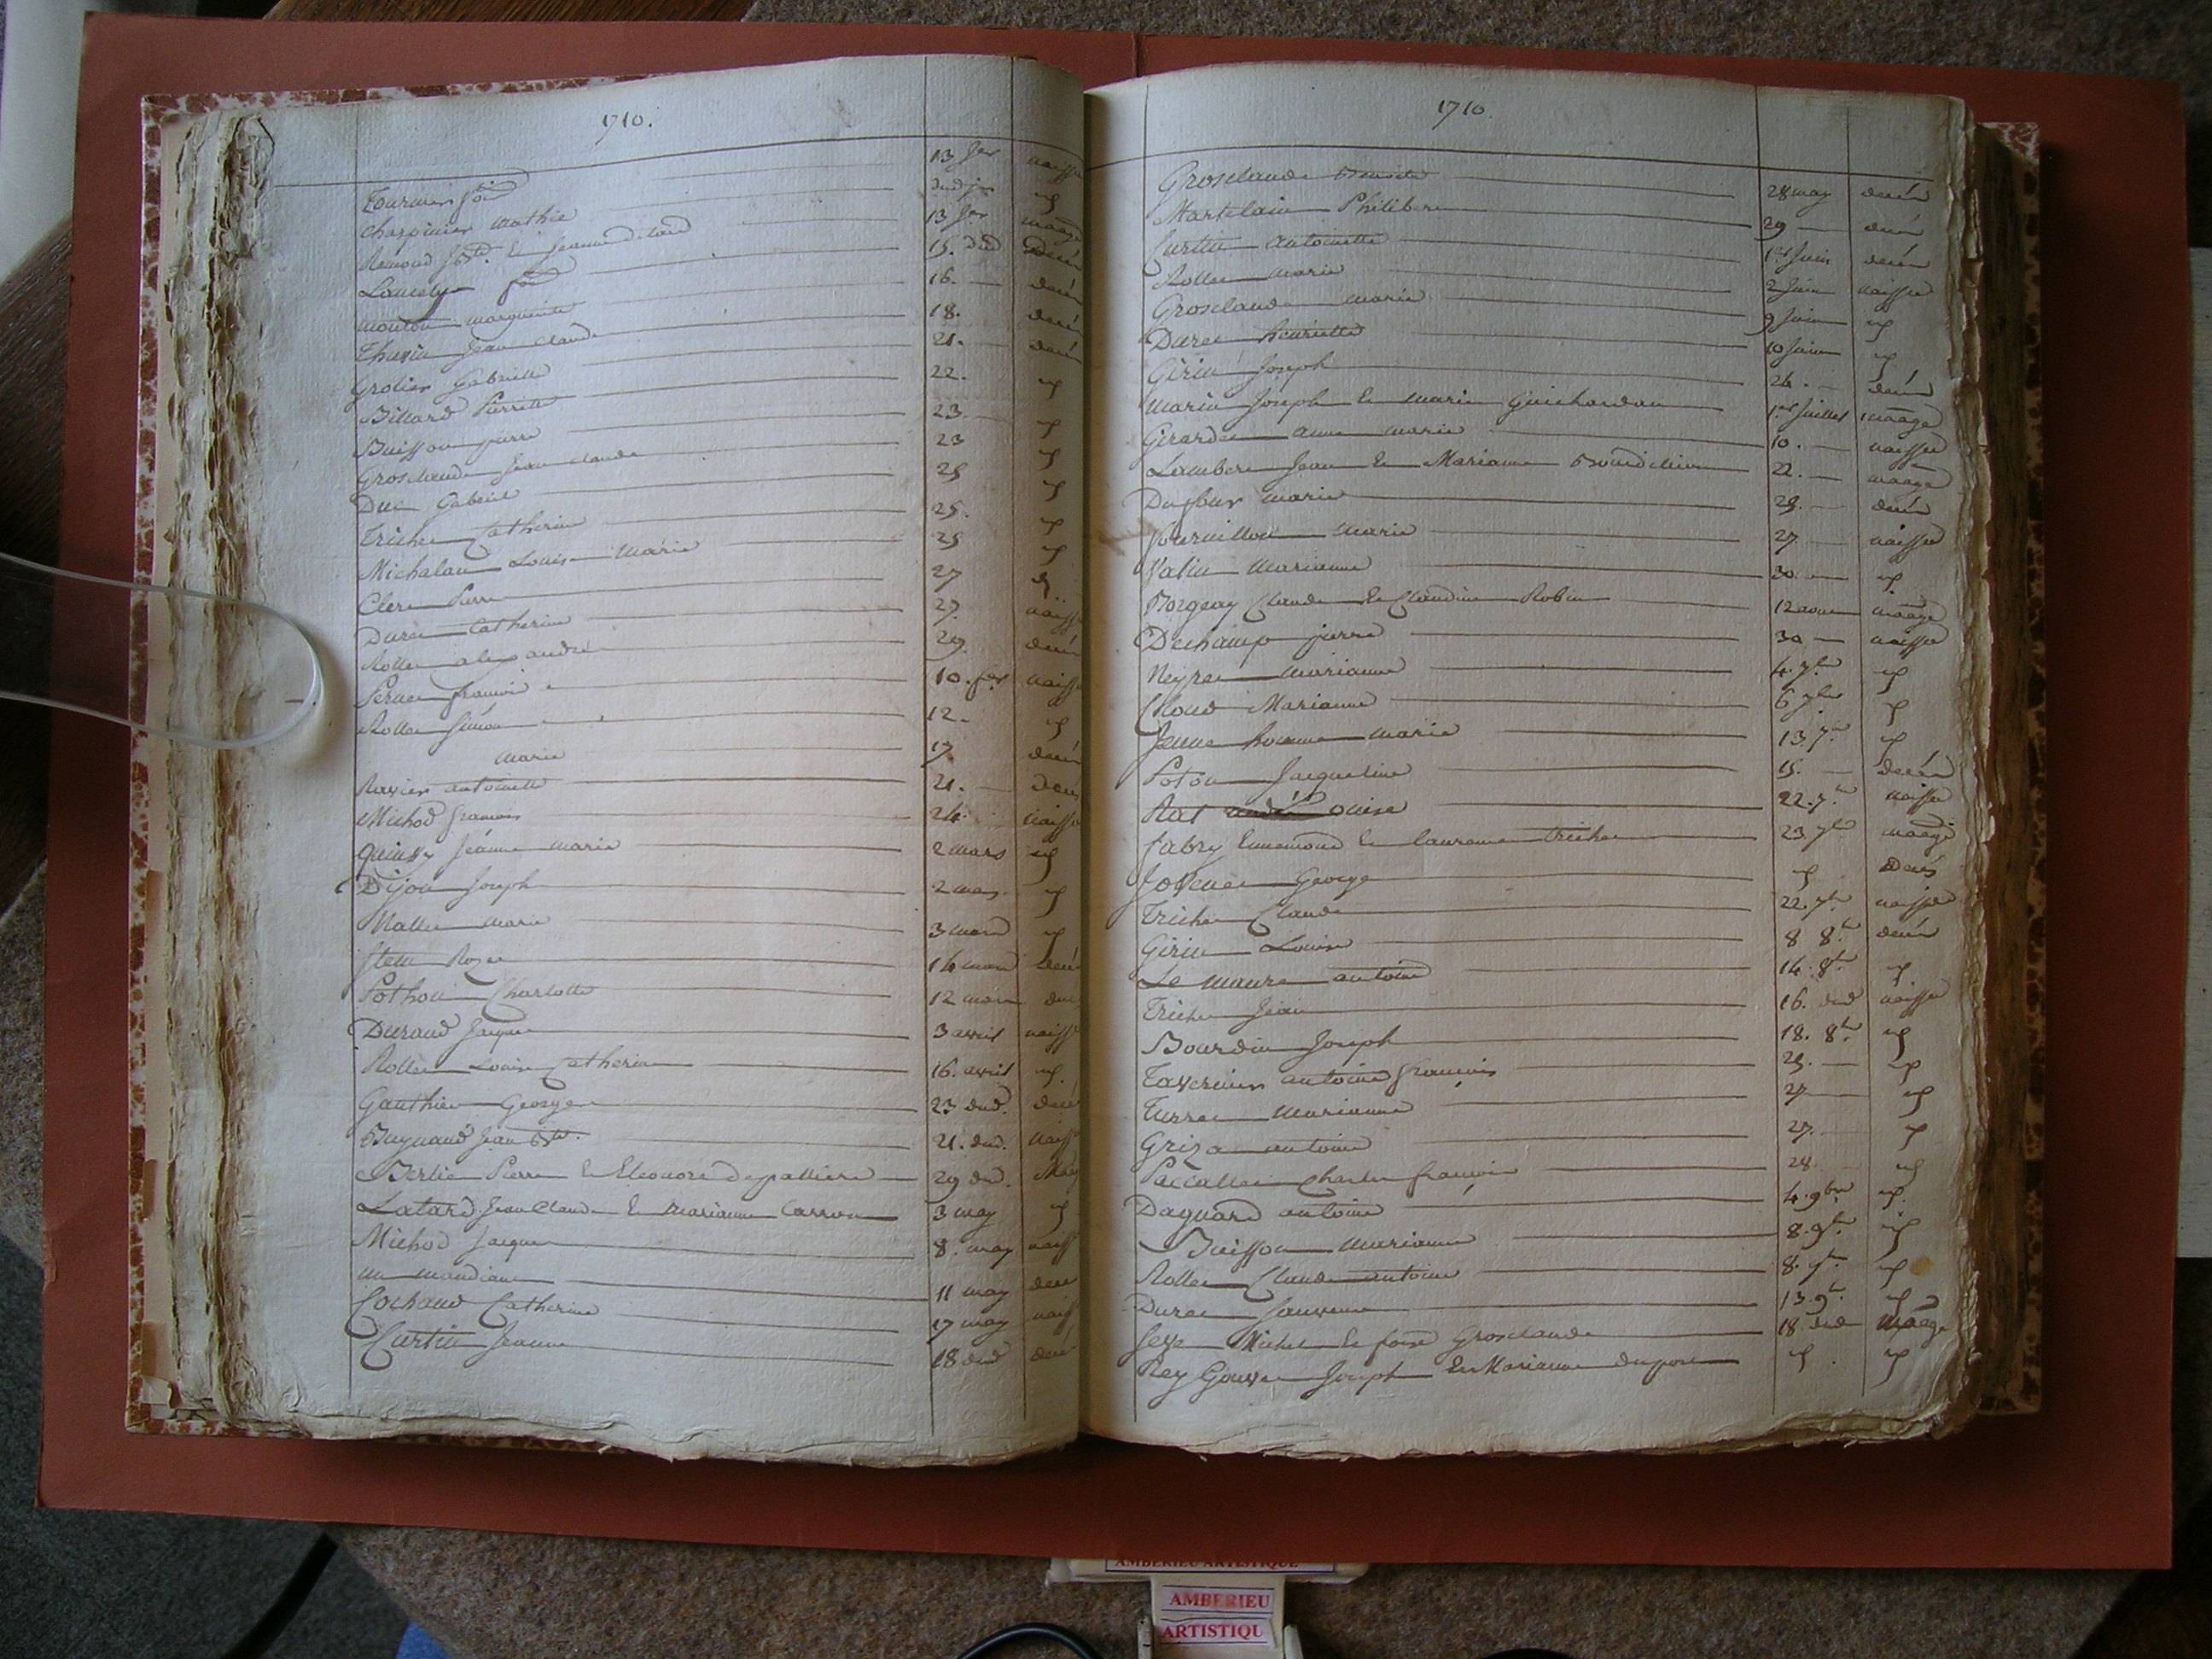 1710.
Tournier
13 jer naisse
Charpinier Mathie
dud jer
Remond
13 jer maage
15. dud Decés
mouton marguerite
16. decés
Thurin Jean Claude
18. decés
Grolier Gabrielle
21. decés
Billard Pierrette
22.
Buisson pierre
23
Grosclaude Jean Claude
23
Duc Gabriel
25
Trichet Catherine
25.
Michalau Louise Marie
25
Clerc Pierre
27
Duret Catherine
27. naisse
Rollet alexandre
29. decés
Pernet francois
10. fer naisse
Rollet Simon
12.
marie
17. decés
Ravier antoinette
21. deces
Michod francois
24. naisse
Quinsy Jeanne marie
2 mars
Dijou Joseph
2 mars
Mallet marie
3 mars
Rose
14 mars decés
Pothon Charlotte
12 mars dec
Durand Jacques
3 avril naisse
Rollet Louise Catherine
16. avril
Gauthier George
23 dud. dec
Jean Bte.
21. dud. naiss
Berlie Pierre et Eleonore depalliere
29 dud. Maag
Latard Jean Claude et Marianne Carron
3 may
Michod Jacques
8. may naiss
un mandiant
11 may dece
Cochand Catherine
17 may naiss
Curtin Jeanne
18 dud decé
1710.
Grosclaude Benoite
28 may decés
Martelain Philibert
29 decés
Curtin antoinette
1er Juin decés
Rollet marie
2 Juin naisse
Grosclaude marie
9 Juin
Duret henriette
10 Juin
Girin Joseph
24. decés
Marin Joseph et marie Guichardan
1er Juillet maage
Girardet anne marie
10. naisse
Lambert Jean et Marianne
22. maage
Dufour marie
25. decés
Jouvenillon marie
27 naisse
Vallin Marianne
30
Borgeay Claude et Claudine Robin
12 aout maage
Dechamp pierre
30 naisse
Neyret marianne
4. 7bre
Cloud Marianne
6 7bre
Jeune homme marie
13. 7bre
Poton Jacqueline
15. Decés
Rat Louise
22. 7bre naisse
Fabry Ennemond et laurence trichet
23 7bre maage
George
Decés
Trichet Claude
22. 7bre naisse
Girin Louise
8 8bre decés
Le maure antoine
14. 8bre
Trichet Jean
16. dud naisse
Bourdin Joseph
18. 8bre
Tavernier antoine francois
25.
Turret Marianne
27
Griza antoine
27.
Paccallet Charles francois
28
Dagnard antoine
4. 9bre
Buisson Marianne
8. 9bre
Rollet Claude antoine
8. 9bre
Duret Laurence
13. 9bre
Michel et Grosclaude
18 dud Maage
Rey Gouvet Joseph et Marianne dupont
AMBERIEU ARTISTIQUE
AMBERIEU
ARTISTIQU